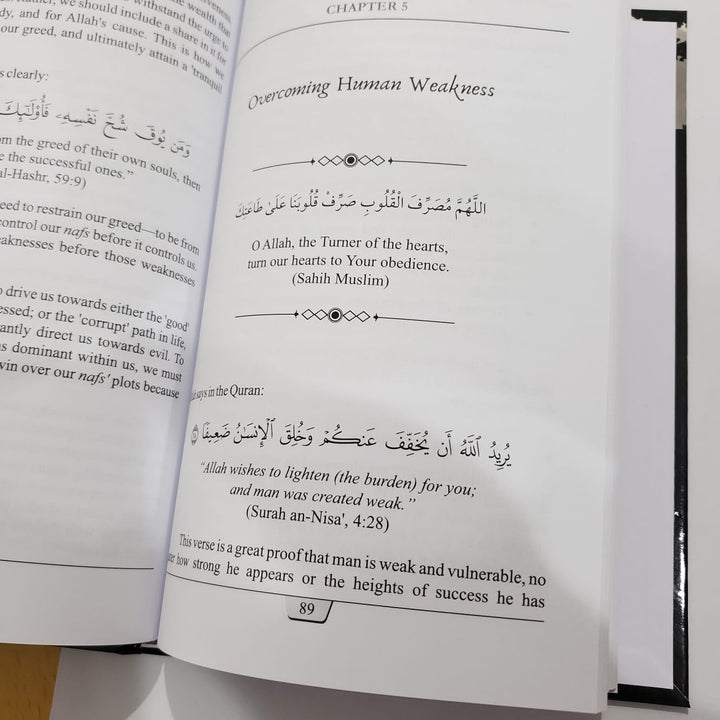 we should include a share in it for
and for Allah's cause. This is how we
our greed, and ultimately attain a 'tranquil
clearly:
وَمَن يُوقَ شُحَّ نَفْسِهِۦ فَأُوْلَٰٓئِكَ
the greed of their own souls, then
the successful ones.”
al-Hashr, 59:9)
to restrain our greed—to be from
control our nafs before it controls us.
before those weaknesses
drive us towards either the 'good'
or the 'corrupt' path in life,
direct us towards evil. To
dominant within us, we must
win over our nafs' plots because
CHAPTER 5
Overcoming Human Weakness
اللَّهُمَّ مُصَرِّفَ الْقُلُوبِ صَرِّفْ قُلُوبَنَا عَلَىٰ طَاعَتِكَ
O Allah, the Turner of the hearts,
turn our hearts to Your obedience.
(Sahih Muslim)
says in the Quran:
يُرِيدُ ٱللَّهُ أَن يُخَفِّفَ عَنكُمْ وَخُلِقَ ٱلْإِنسَٰنُ ضَعِيفًا
“Allah wishes to lighten (the burden) for you;
and man was created weak.”
(Surah an-Nisa', 4:28)
This verse is a great proof that man is weak and vulnerable, no
how strong he appears or the heights of success he has
89